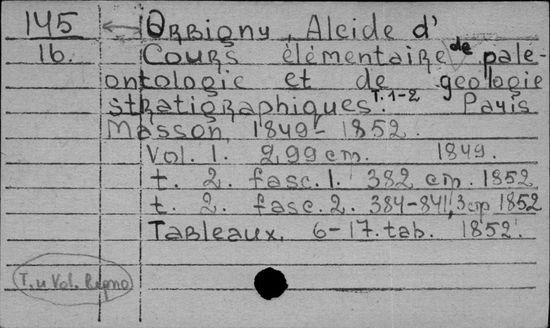 145 Orbigny, Alcide d'
16. Cours élémentaire de palé-
ontologie et de géologie
stratigraphiques. T. 1-2 Paris
Masson, 1849-1852.
Vol. 1. 299 cm. 1849.
t. 2. fasc. 1. 382 cm. 1852
t. 2. fasc. 2. 384-841, 3 cm 1852
Tableaux. 6-17. tab. 1852.
T. u Vol.